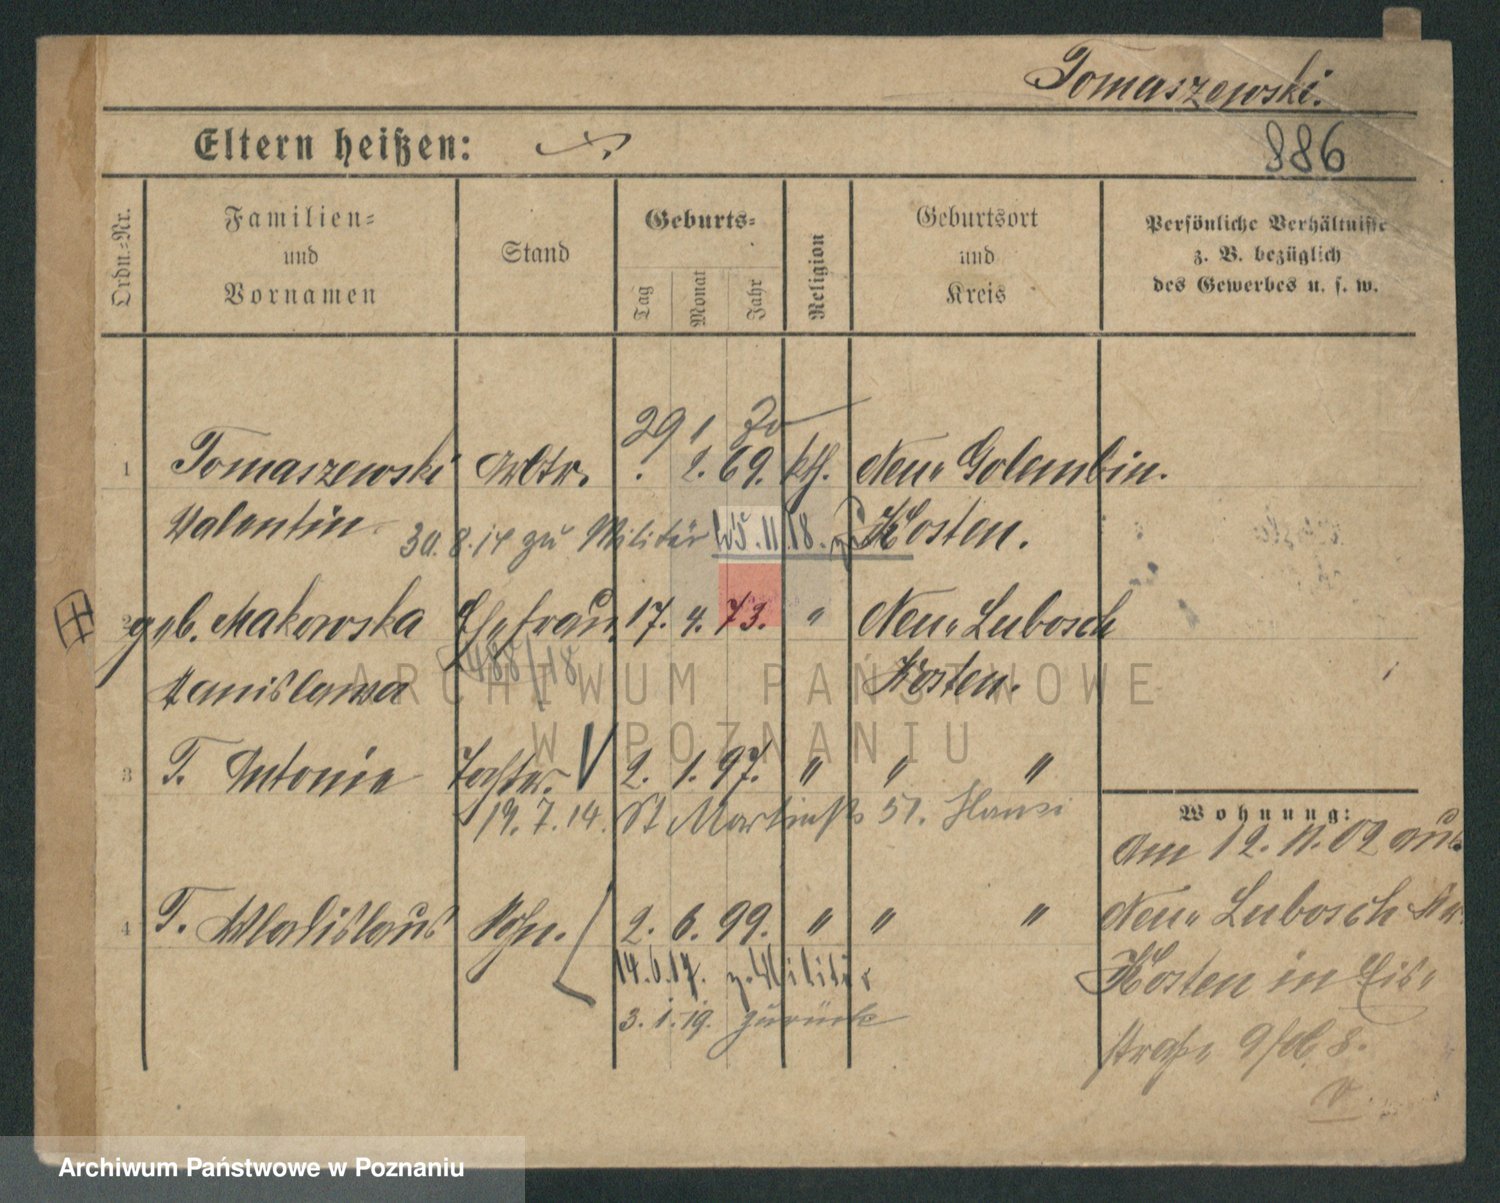 Tomaszewski.
Eltern heißen:
886
Ordn.-Nr.
Familien-
und
Vornamen
Stand
Geburts-
Tag
Monat
Jahr
Religion
Geburtsort
und
Kreis
Persönliche Verhältnisse
z. B. bezüglich
des Gewerbes u. s. w.
29 1 70
1 Tomaszewski Arbtr. . 2. 69. kth. Neu-Golembin.
Valentin 30.8.14 zu Militär 11.18. Kosten.
2 geb. Makowska Ehefrau 17. 4. 73. " Neu-Lubosch
488/18
Stanislawa Kosten.
3 T. Antonie Tochter. 2. 1. 97. " " "
19.7.14. St Martinstr 51.
4 T. Wladislaus Sohn. 2. 6. 99. " " "
14.6.17. z. Militär
3.1.19. zurück
Wohnung:
Am 12.11.02 aus
Neu-Lubosch Kr.
Kosten in
straße 9
ARCHIWUM PAŃSTWOWE
W POZNANIU
Archiwum Państwowe w Poznaniu